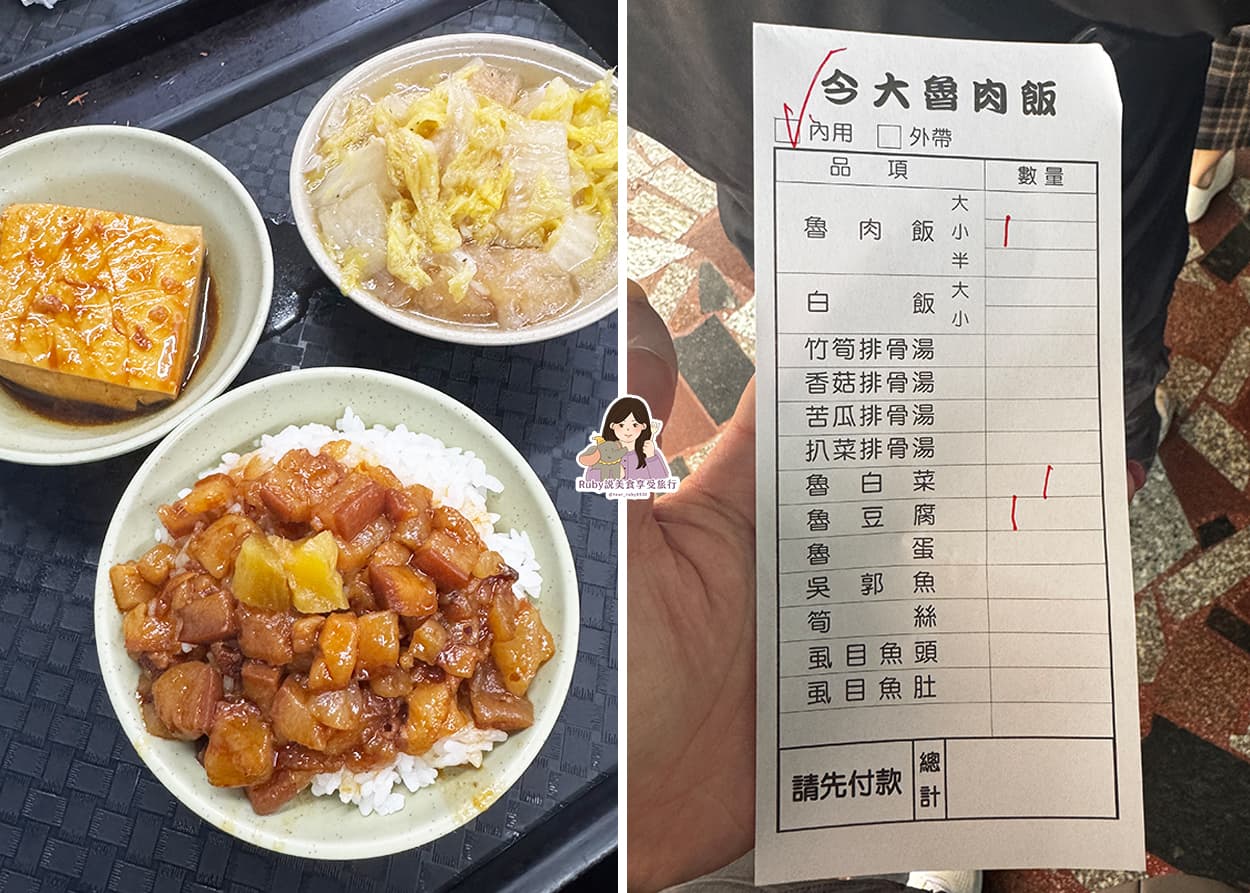 今大魯肉飯
內用 外帶
品項 數量
魯肉飯 大
小
半
白飯 大
小
竹筍排骨湯
香菇排骨湯
苦瓜排骨湯
扒菜排骨湯
魯白菜
魯豆腐
魯蛋
吳郭魚
筍絲
虱目魚頭
虱目魚肚
請先付款 總計
Ruby說美食享受旅行